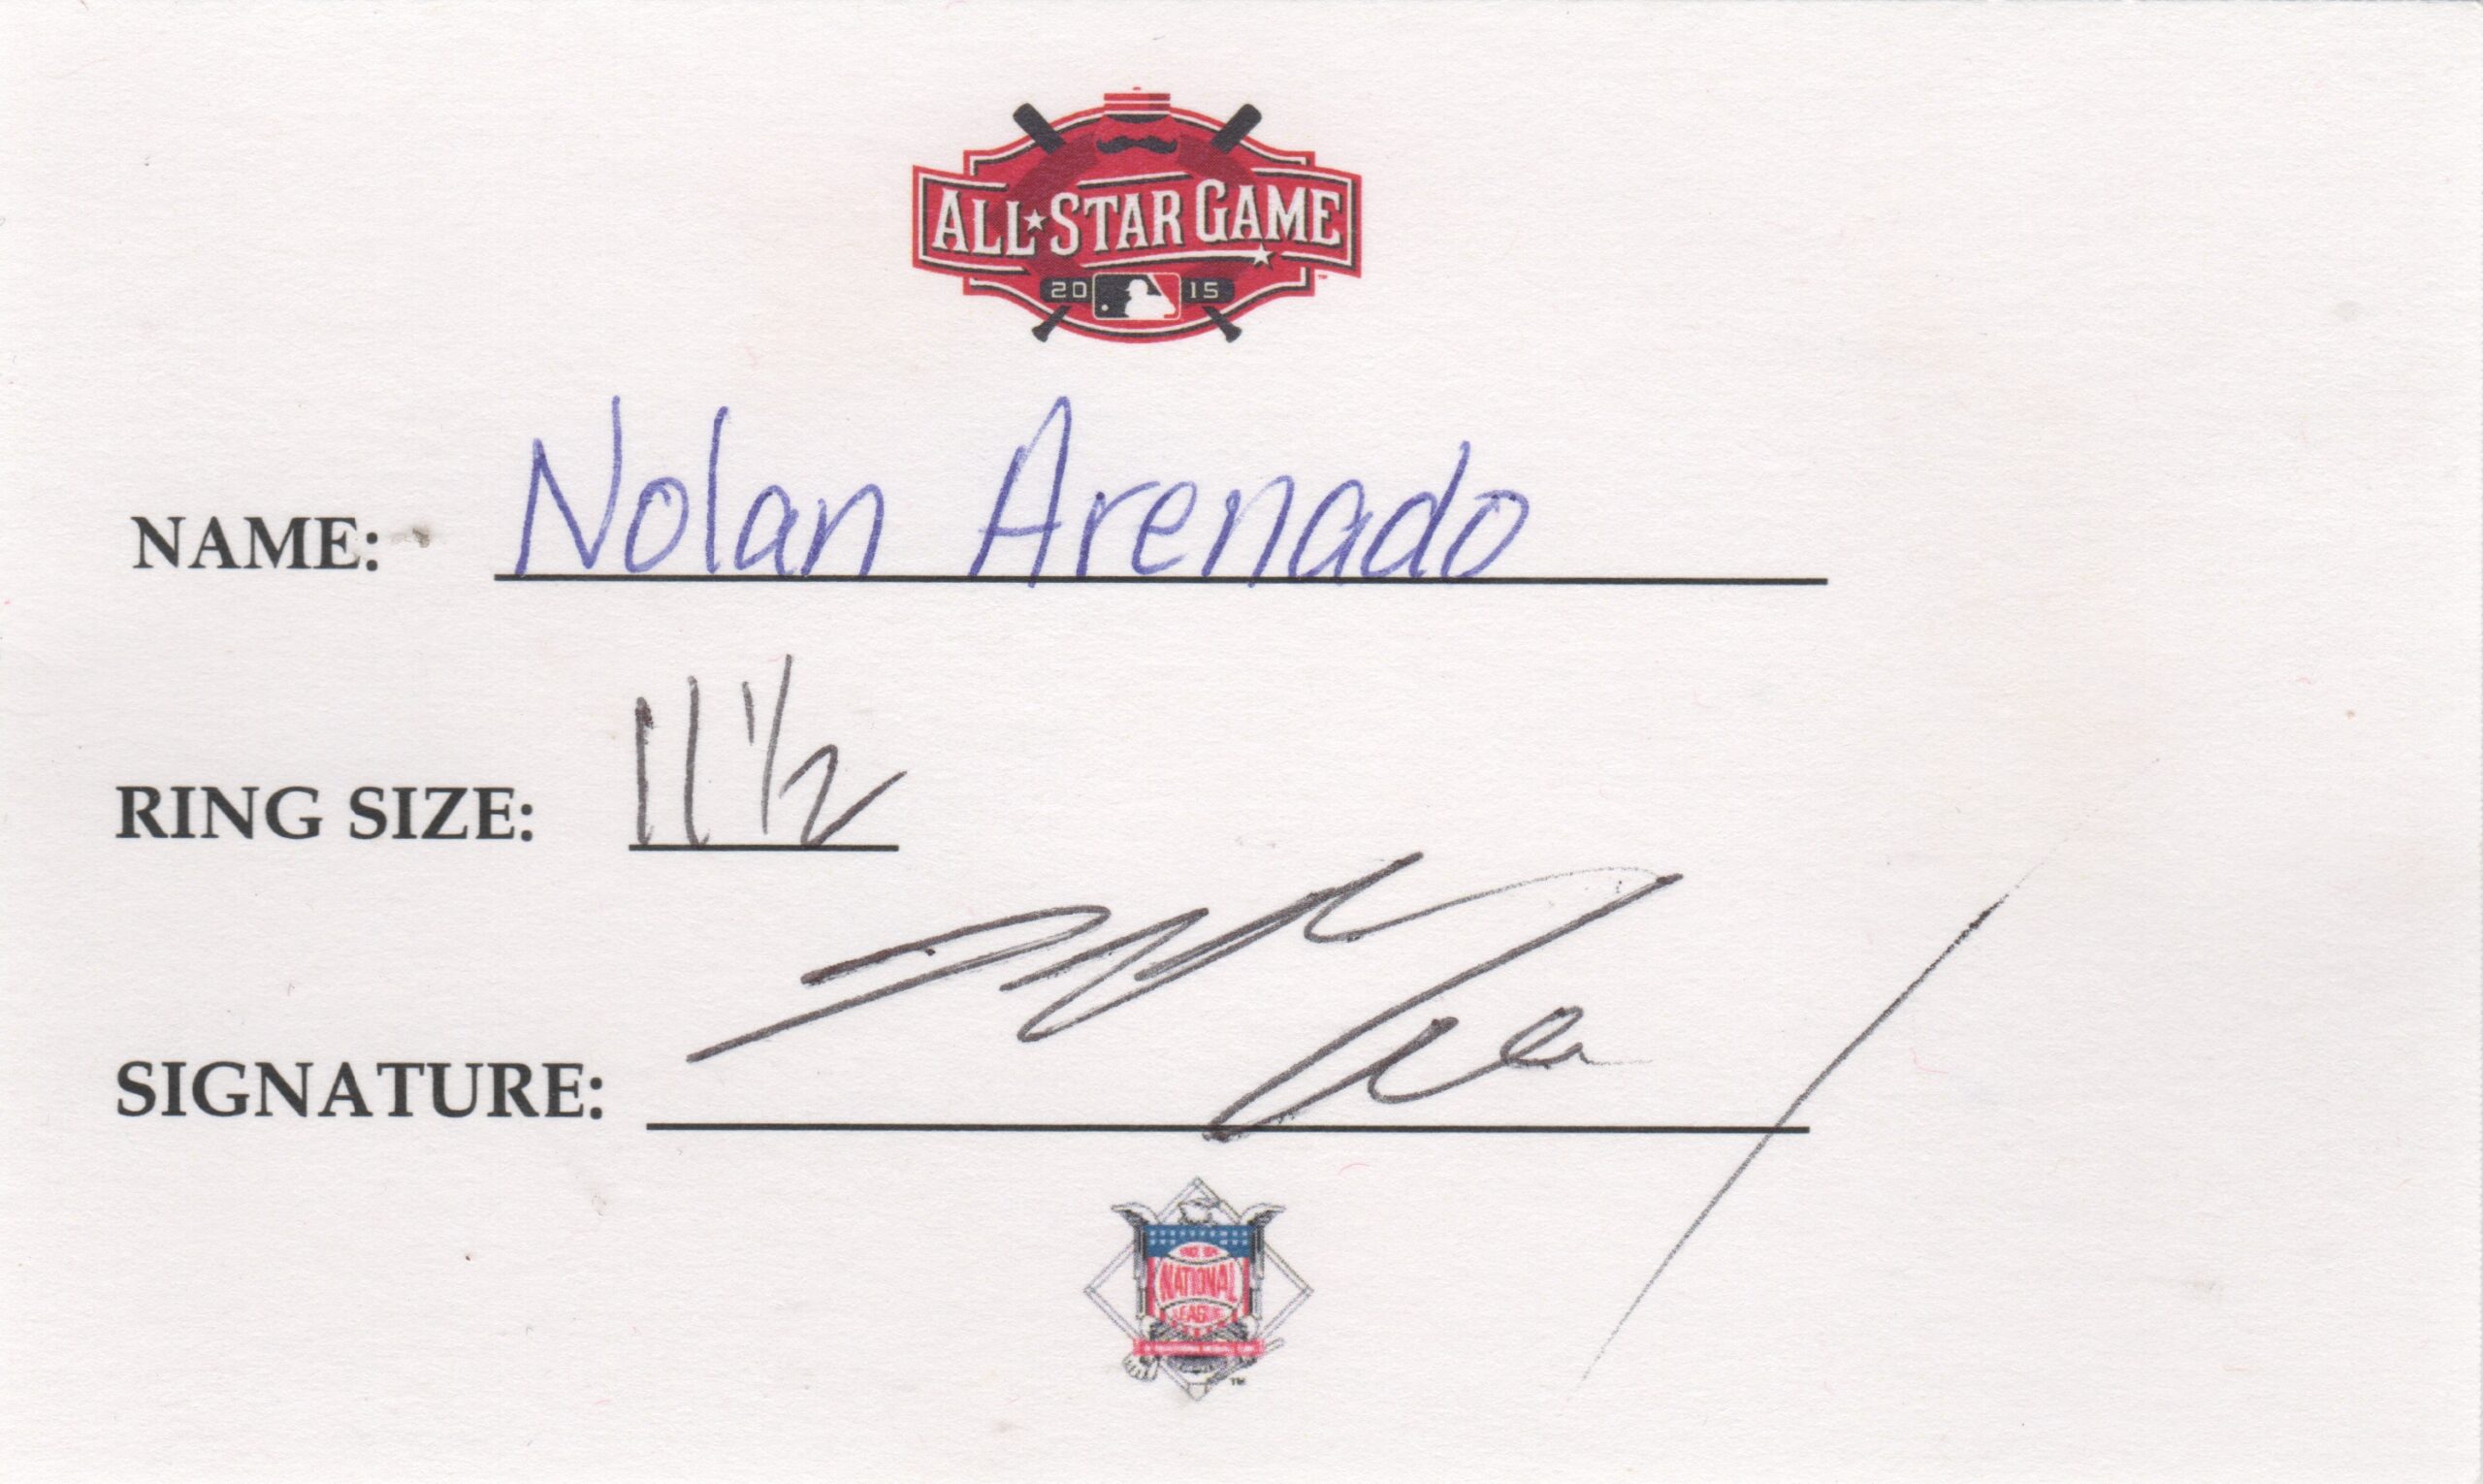 ALL★STAR GAME
20 15
™
NAME: Nolan Arenado
RING SIZE: 11 1/2
SIGNATURE:
NATIONAL
LEAGUE
™